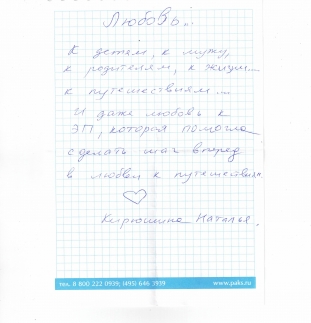 Любовь...
К детям, к мужу,
к родителям, к жизни...
к путешествиям...
И даже любовь к
ЭП, которая помогла
сделать шаг вперед
в любви к путешествиям
Кирюшина Наталья.
тел. 8 800 222 0939; (495) 646 3939
www.paks.ru